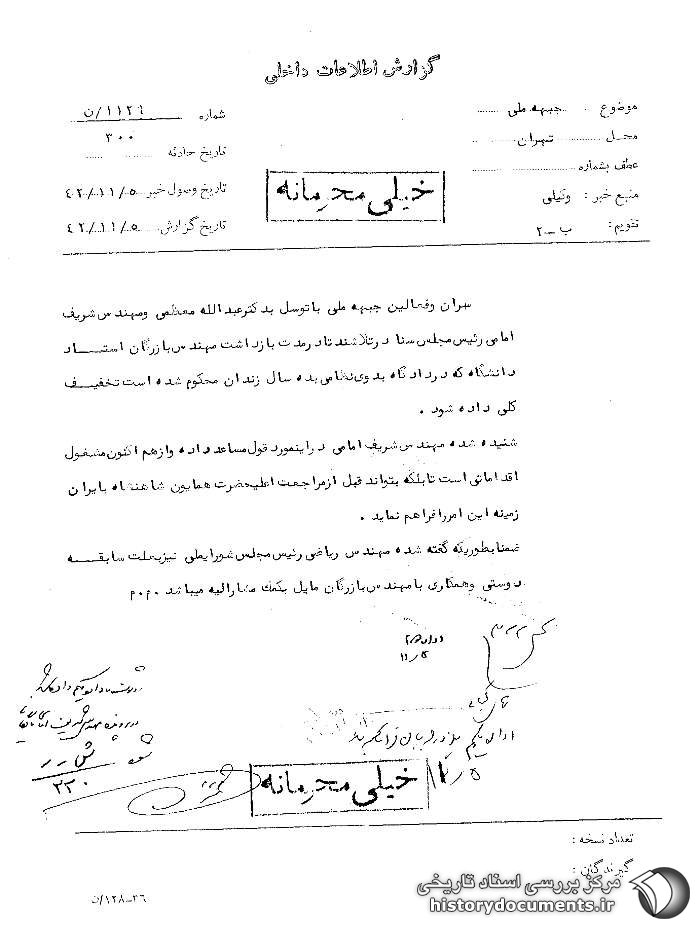 گزارش اطلاعات داخلی
موضوع جبهه ملی
شماره ۱۱۲۹/ن
۳۰۰
محل تهران
تاریخ حادثه
عطف بشماره
خیلی محرمانه
منبع خبر : وکیلی
تاریخ وصول خبر ۴۲/۱۱/۵
تقویم: ب-۲
تاریخ گزارش ۴۲/۱۱/۵
سران وفعالین جبهه ملی باتوسل بدکترعبدالله معظمی ومهندس شریف
امامی رئیس مجلس سنا درتلاشند تادرمدت بازداشت مهندس بازرگان استاد
دانشگاه که دردادگاه بدوی نظامی بده سال زندان محکوم شده است تخفیف
کلی داده شود .
شنیده شده مهندس شریف امامی دراینمورد قول مساعد داده وازهم اکنون مشغول
اقداماتی است تابلکه بتواند قبل ازمراجعت اعلیحضرت همایون شاهنشاه بایران
زمینه این امررافراهم نماید .
ضمنا بطوریکه گفته شده مهندس ریاضی رئیس مجلس شورایملی نیزبعلت سابقه
دوستی وهمکاری بامهندس بازرگان مایل بکمک مشارالیه میباشد م۰م۰
۱۱/۵
۲۳۰
۱۱/۵
خیلی محرمانه
تعداد نسخه :
گیرندگان :
۳۶-۱۲۸/ن
مرکز بررسی اسناد تاریخی
historydocuments.ir